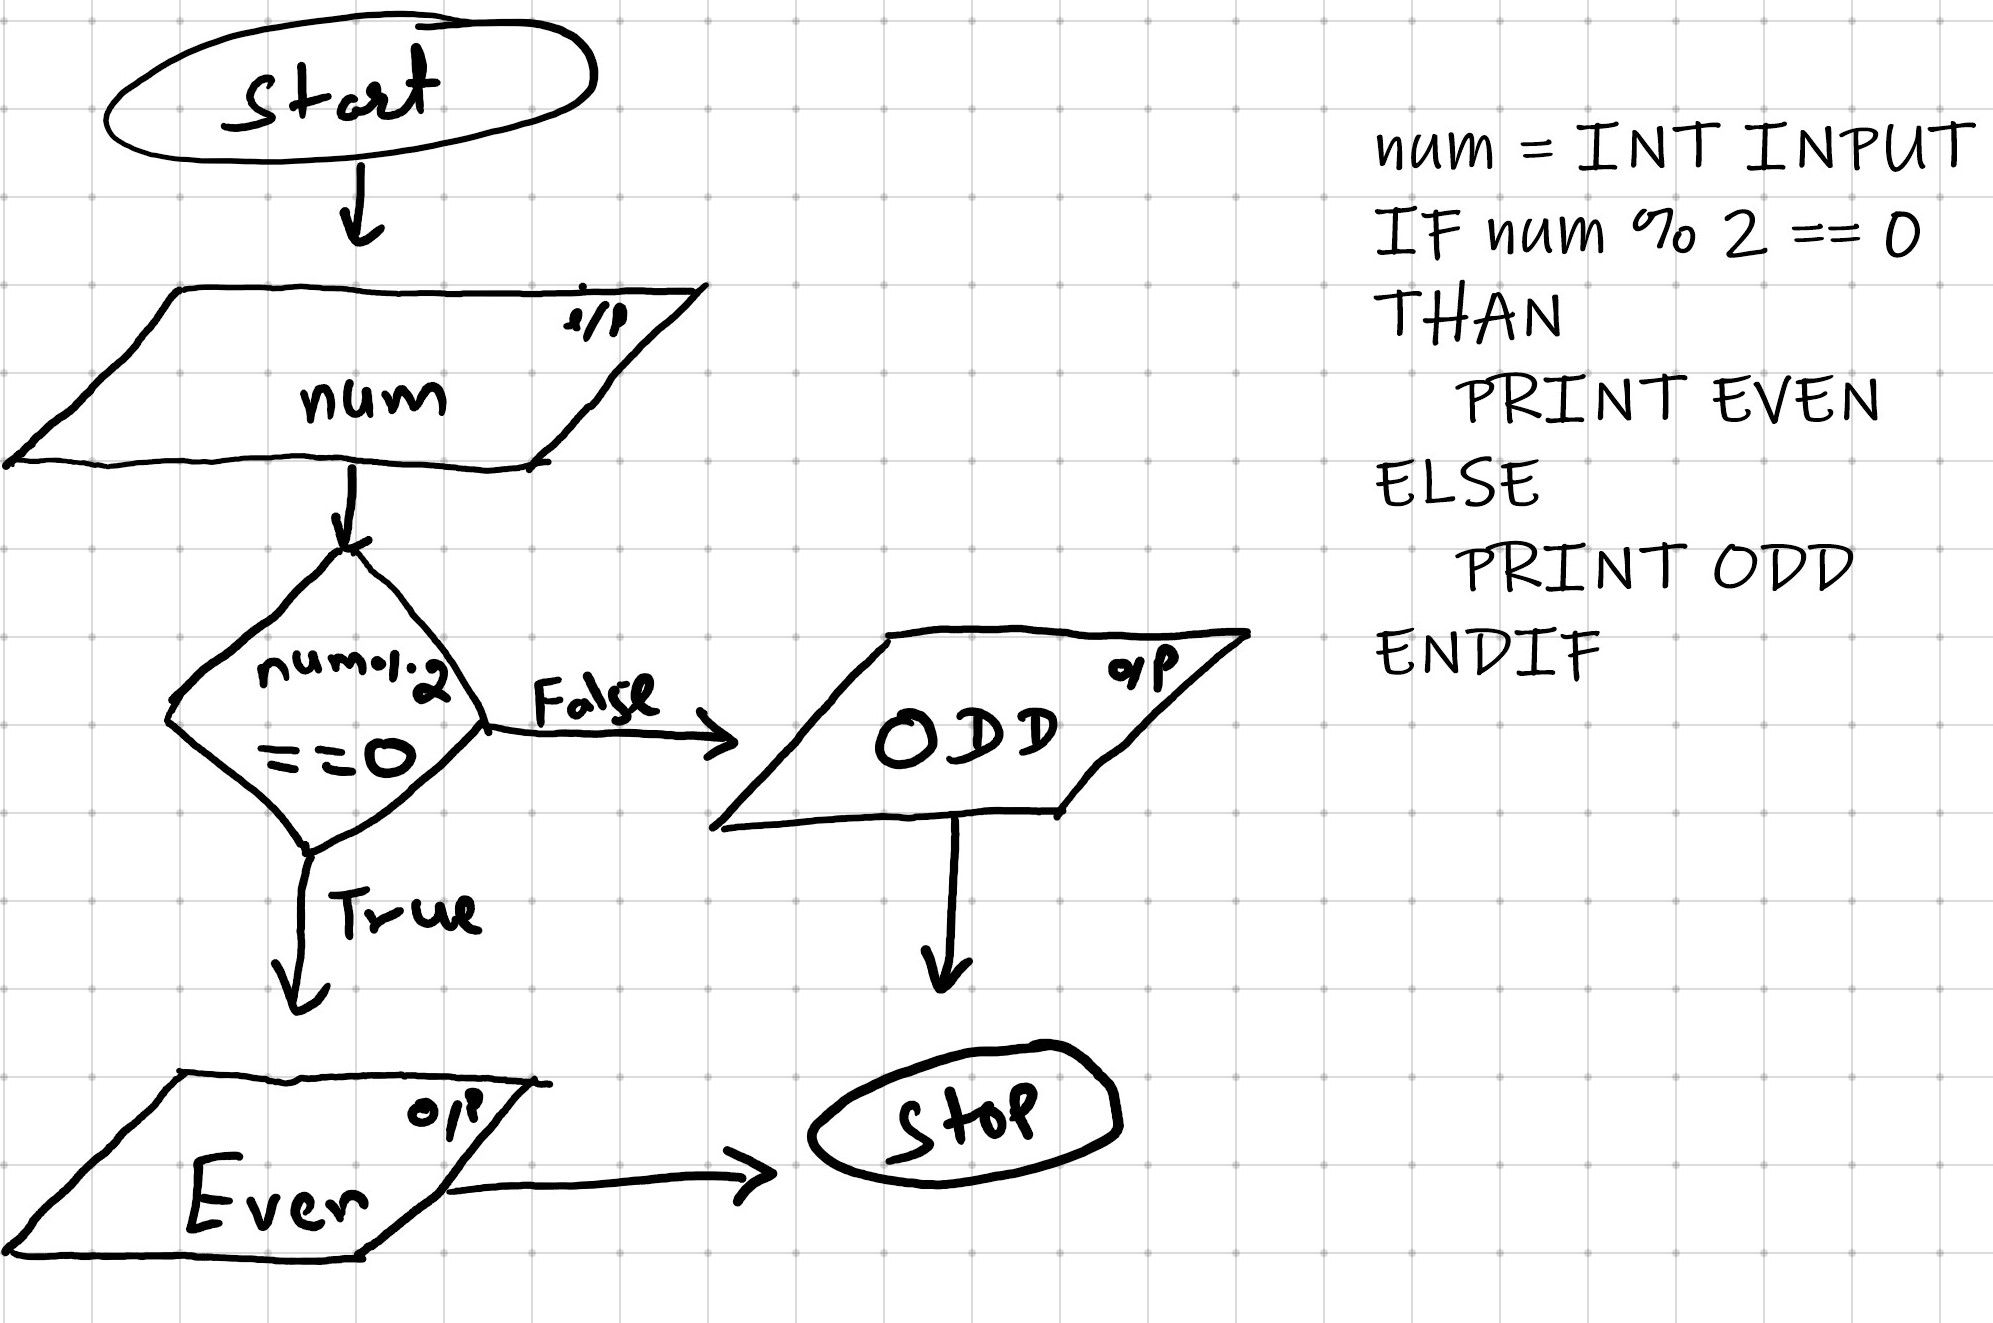 Start
i/p
num
num % 2
== 0
False
True
o/p
ODD
o/p
Even
Stop
num = INT INPUT
IF num % 2 == 0
THAN
PRINT EVEN
ELSE
PRINT ODD
ENDIF